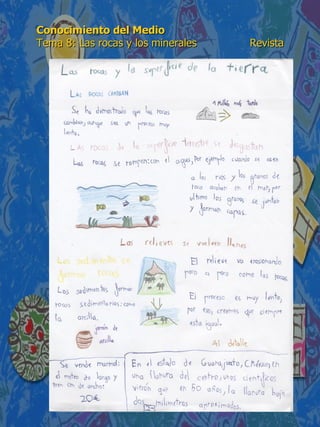 Conocimiento del Medio
Tema 8: Las rocas y los minerales Revista
Las rocas y la superficie de la tierra
LAS ROCAS CAMBIAN
Se ha demostrado que las rocas
cambian, aunque sea un proceso muy
lento.
1 Millón más tarde
LAS ROCAS de la superficie terrestre se desgastan
Las rocas se rompen con el agua, Por ejemplo cuando se caen
a los rios y los granos de
roca acaban en el mar, por
ultimo los granos se juntan
y forman capas.
Los relieves se vuelven llanos
Los sedimentos se
forman rocas
Los sedimentos forman
rocas sedimentarias; como
la arcilla.
jarrón de
arcilla
El relieve va erosionando
poco a poco como las rocas
El proceso es muy lento,
por eso, creemos que siempre
esta igual.
Al detalle
Se vende marmol:
el metro de largo y
tres cm de ancho:
20€
En el estado de Guanajuato, (México) en
una llanura del centro, unos científicos
vieron que en 50 años, la llanura bajó
dos milímetros aproximados.